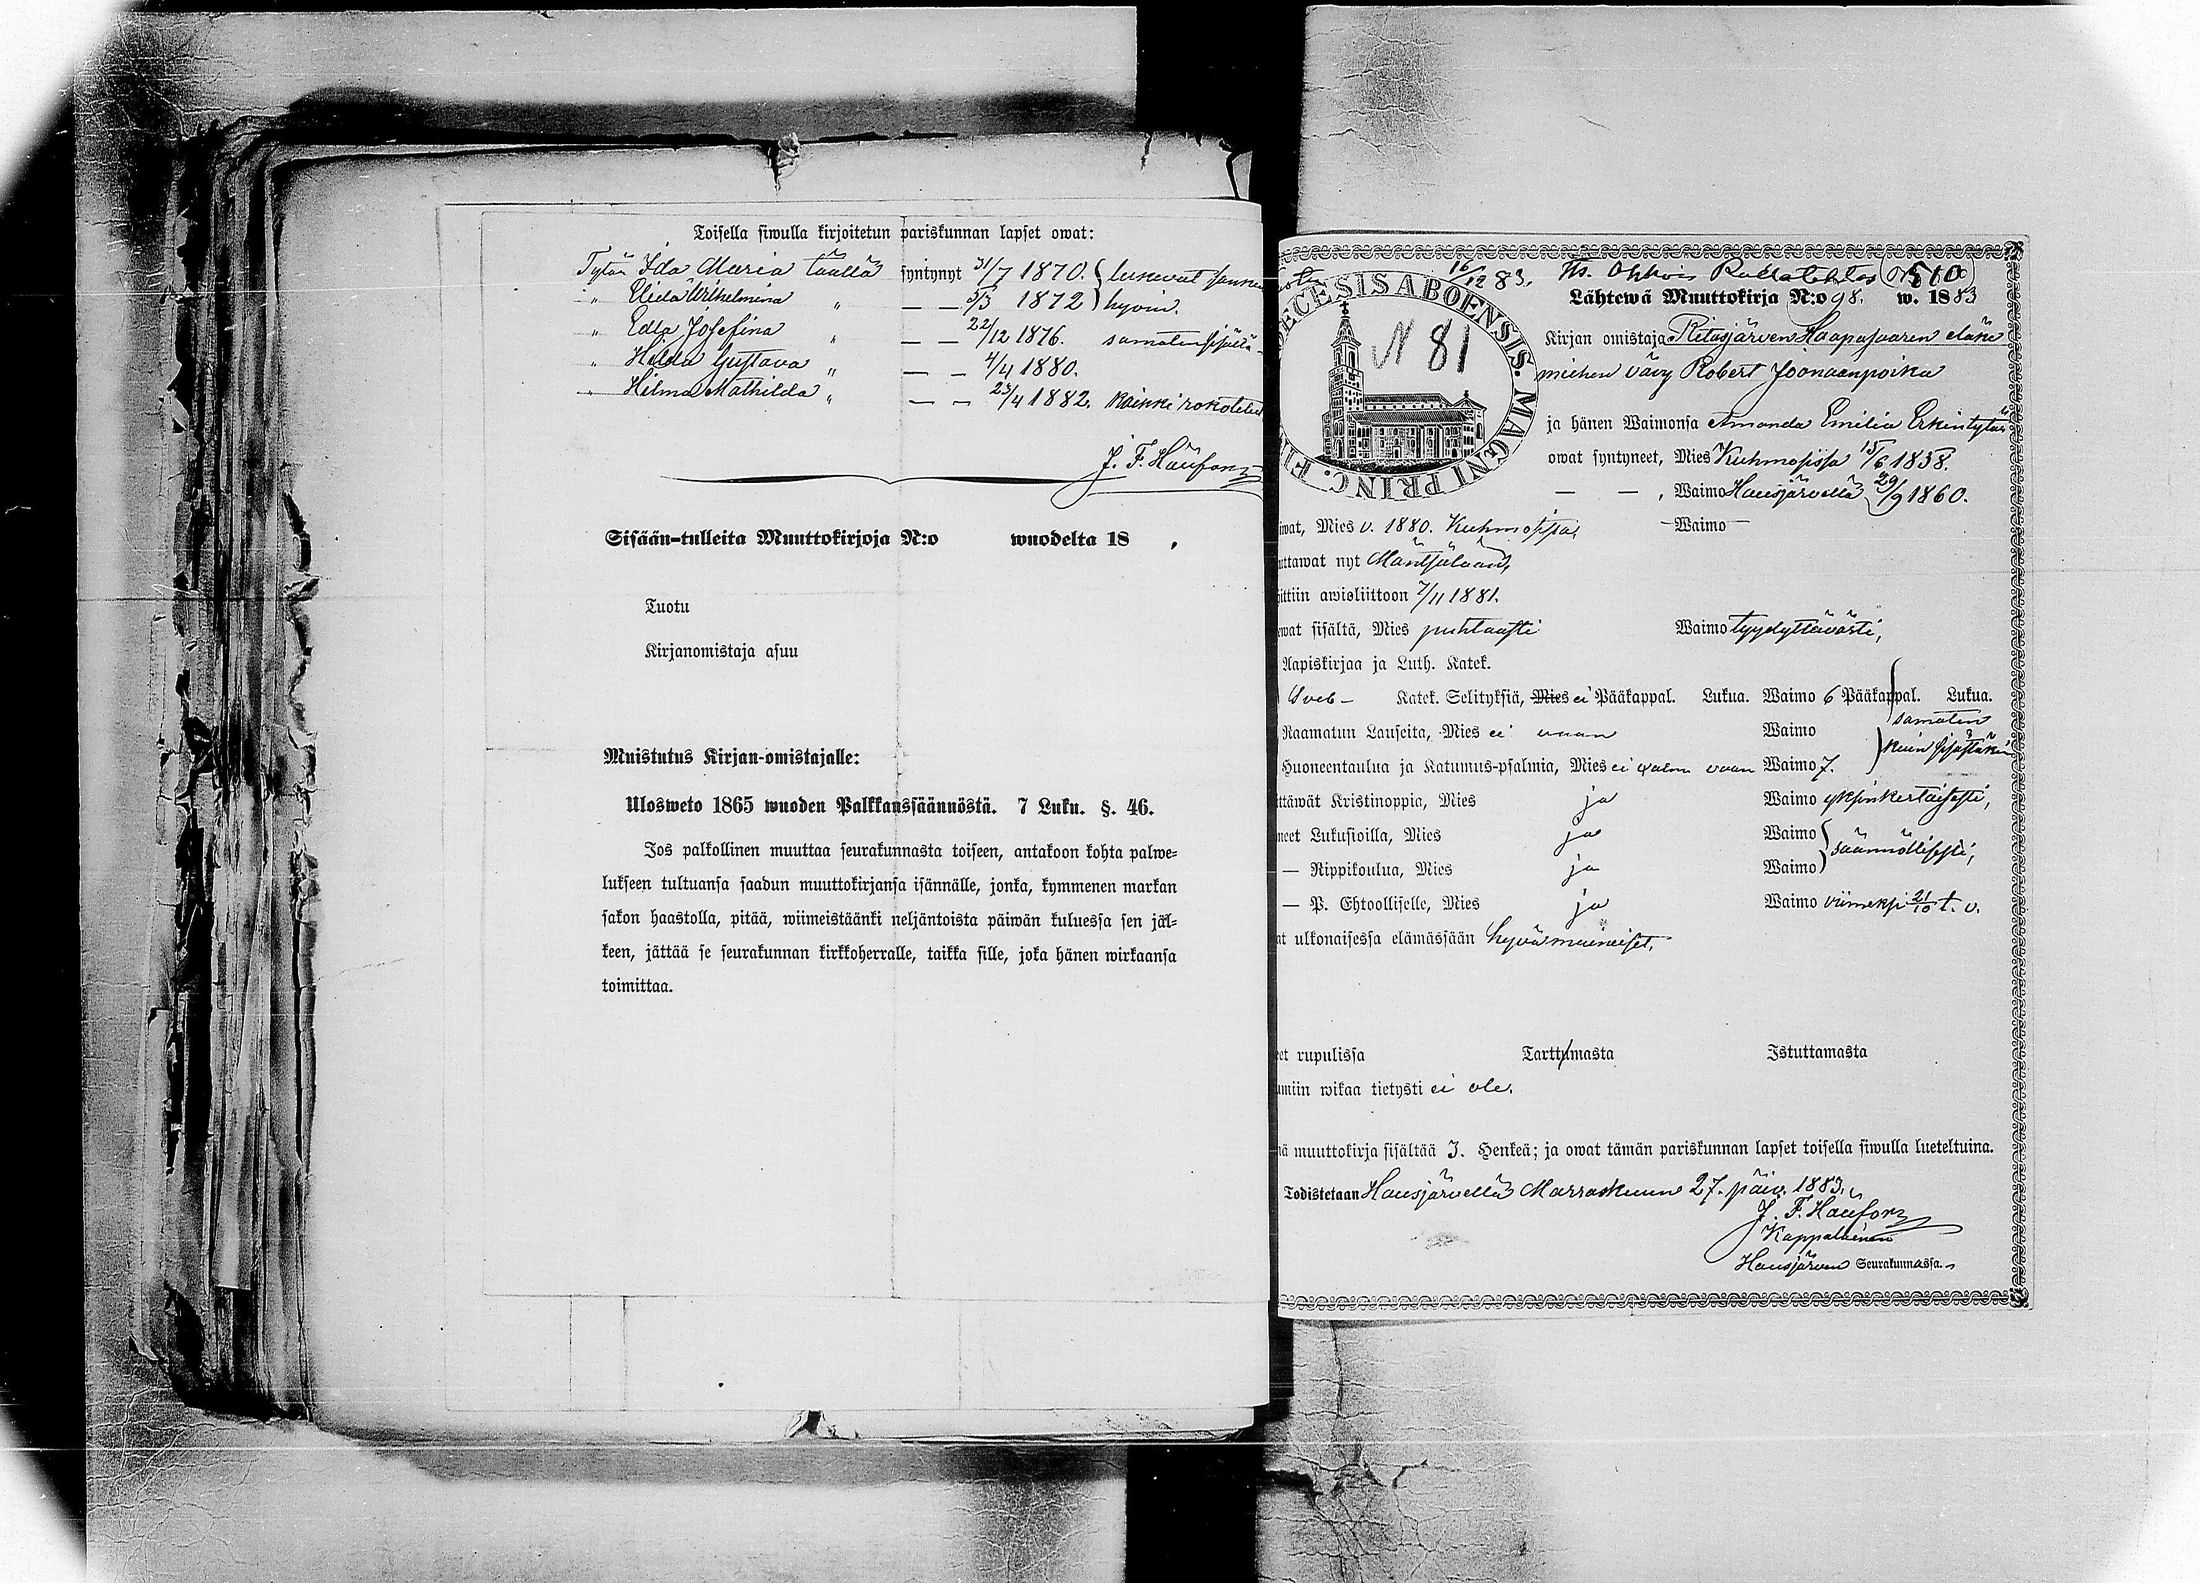 Toisella siwulla kirjoitetun pariskunnan lapset owat:
Tytär Ida Maria täällä syntynyt 31/7 1870. lukevat
" Wilhelmina " — — 5/3 1872 hyvin.
" Edla Josefina " — — 22/12 1876. samaten sisältä
" Hilda Gustava " — — 4/4 1880.
" Hilma Mathilda " — — 23/4 1882. Kaikki rokotetut
J. F. Haufors
Sisään-tulleita Muuttokirjoja N:o wuodelta 18 .
Tuotu
Kirjanomistaja asuu
Muistutus Kirjan-omistajalle:
Ulosweto 1865 wuoden Palkkaussäännöstä. 7 Luku. §. 46.
Jos palkollinen muuttaa seurakunnasta toiseen, antakoon kohta palwe=
lukseen tultuansa saadun muuttokirjansa isännälle, jonka, kymmenen markan
sakon haastolla, pitää, wiimeistäänki neljäntoista päiwän kuluessa sen jäl=
keen, jättää se seurakunnan kirkkoherralle, taikka sille, joka hänen wirkaansa
toimittaa.
16/12 83. 510
Lähtewä Muuttokirja N:o 98. w. 1883
ECESIS ABOENSIS. MAGNI PRINC. FI
N 81
Kirjan omistaja Ritasjärven Haapasaaren eläke
miehen vävy Robert Joonaanpoika
ja hänen Waimonsa Amanda Emilia Erkintytär
owat syntyneet, Mies Kuhmosissa 15/6 1858.
— — , Waimo Hausjärvellä 29/9 1860.
iwat, Mies v. 1880. Kuhmosissa, — Waimo —
uttawat nyt Mäntsälään,
ittiin awioliittoon 7/11 1881.
ewat sisältä, Mies puhtaasti Waimo tyydyttävästi,
Aapiskirjaa ja Luth. Katek.
Sveb — Katek. Selityksiä, Mies ei Pääkappal. Lukua. Waimo 6 Pääkappal. Lukua.
Raamatun Lauseita, Mies ei vaan Waimo samaten
Huoneentaulua ja Katumus-psalmia, Mies ei vaan Waimo 7. kuin sisästäkin
ttäwät Kristinoppia, Mies ja Waimo yksinkertaisesti,
neet Lukusioilla, Mies ja Waimo säännöllisesti,
— Rippikoulua, Mies ja Waimo
— P. Ehtoolliselle, Mies ja Waimo viimeksi 21/10 t. v.
at ulkonaisessa elämässään hyvämaineiset.
eet rupulissa Tarttumasta Istuttamasta
umiin wikaa tietysti ei ole.
ä muuttokirja sisältää 3. Henkeä; ja owat tämän pariskunnan lapset toisella siwulla lueteltuina.
Todistetaan Hausjärvellä Marraskuun 27. päiv. 1883.
J. F. Haufors
Kappalainen
Hausjärven Seurakunnassa.